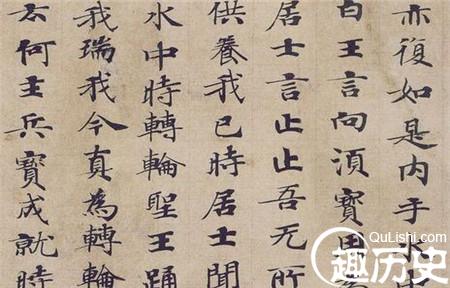 亦復如是内手水
白王言向湏寶用
居士言止止吾无所
供養我已時居士聞
水中時轉輪聖王踊
我瑞我今真為轉輪
云何主兵寶成就時
QuLishi.com
趣历史